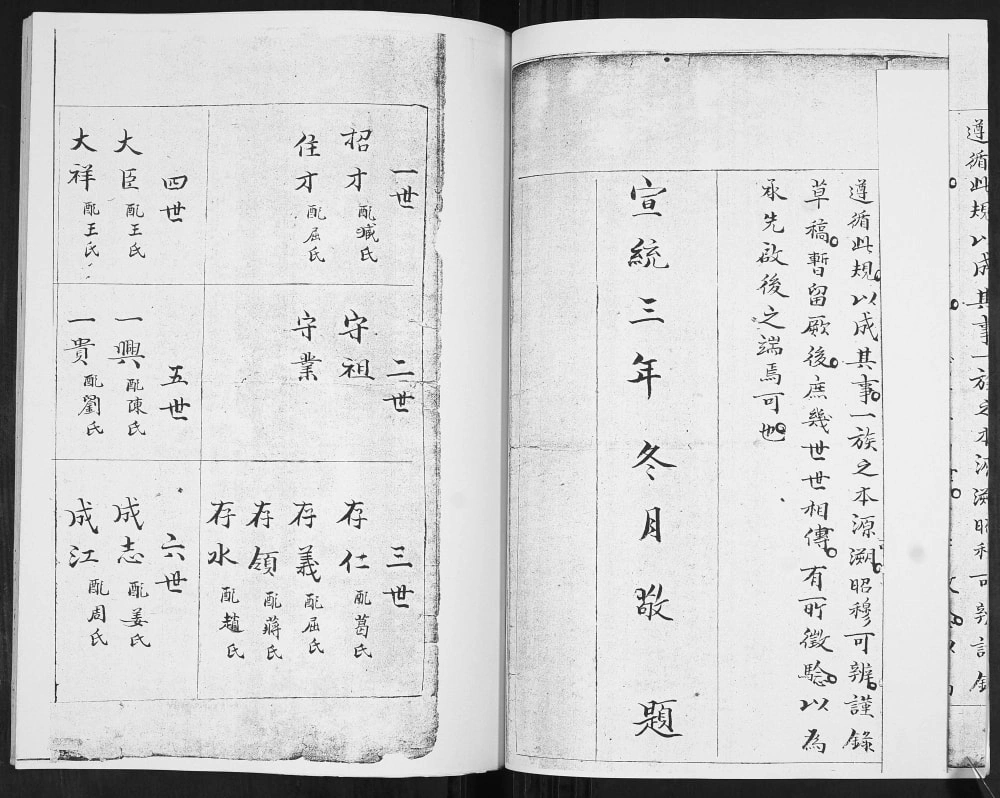 遵循此規以成其事一族之本源溯昭穆可辨謹錄
遵循此規以成其事一族之本源溯昭穆可辨謹錄
草稿暫留厥後庶幾世世相傳有所徵驗以為
承先啟後之端焉可也
宣統三年冬月敬題
一世
招才配臧氏
住才配屈氏
二世
守祖
守業
三世
存仁配葛氏
存義配屈氏
存領配蔣氏
存水配趙氏
四世
大臣配王氏
大祥配王氏
五世
一興配陳氏
一貴配劉氏
六世
成志配姜氏
成江配周氏